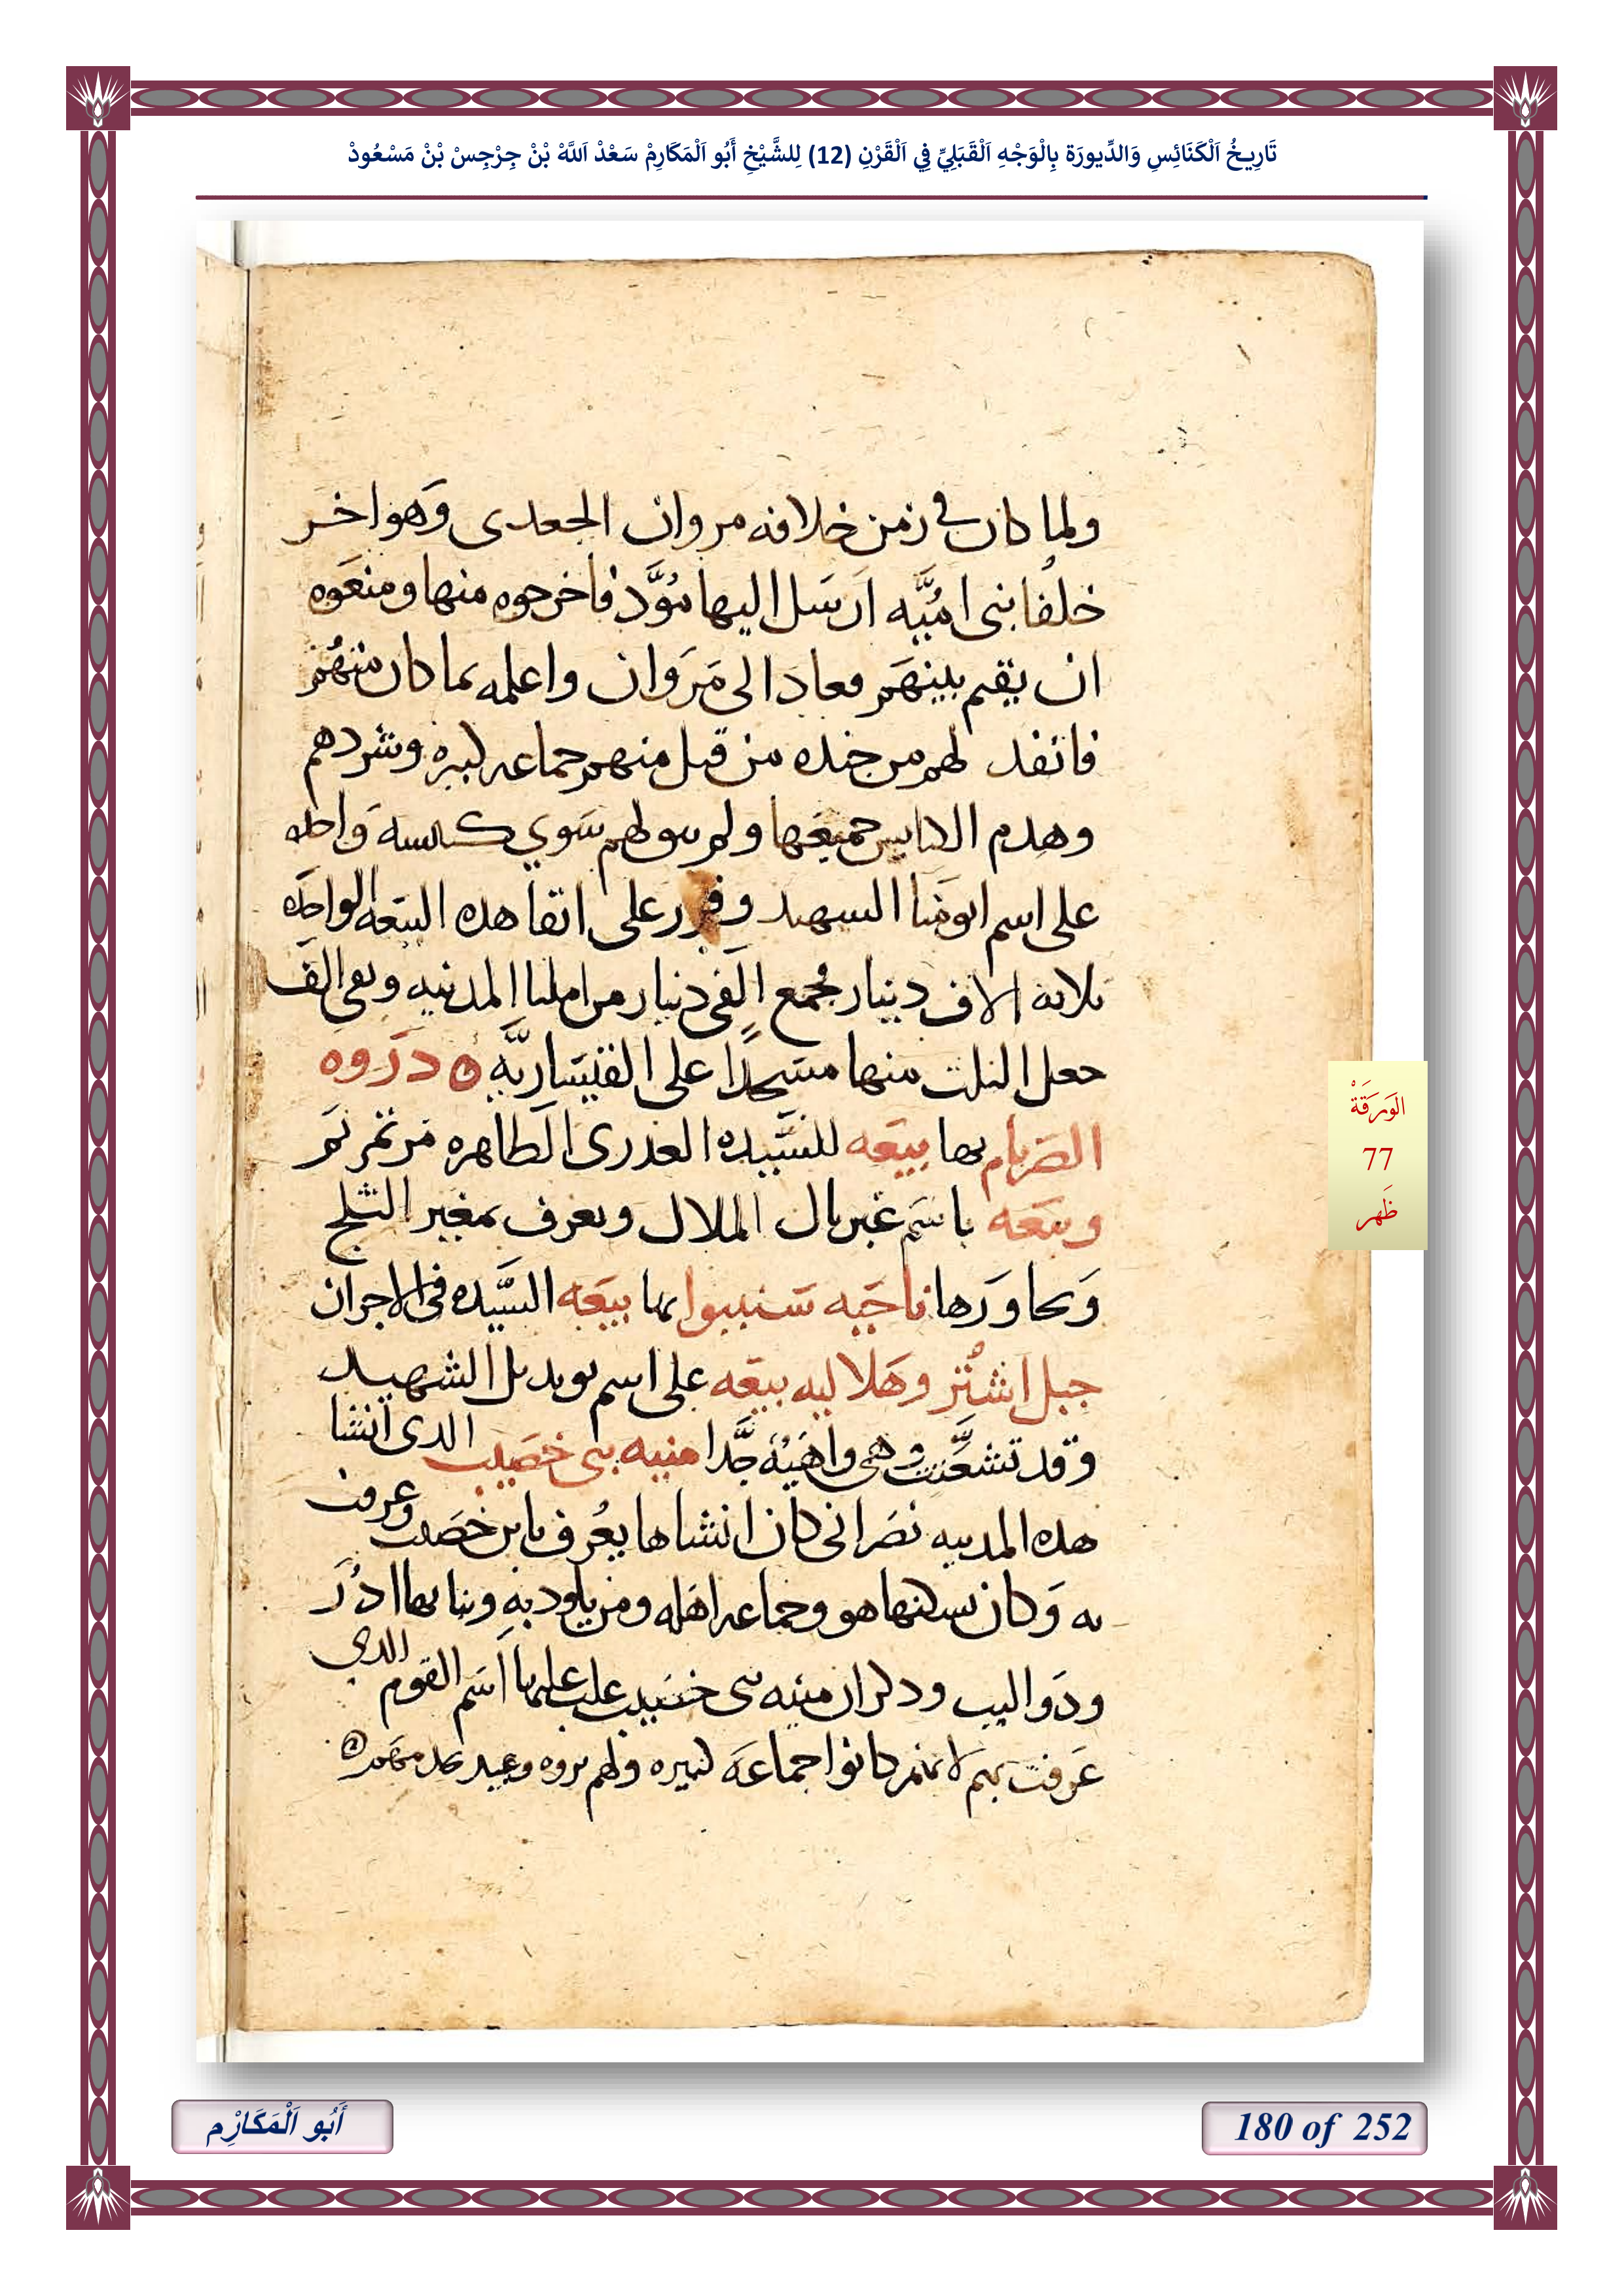 تَارِيخُ اَلْكَنَائِسِ وَالدِّيورَة بِالْوَجْهِ اَلْقَبَلِيِّ فِي اَلْقَرْنِ (12) لِلشَّيْخِ أَبُو اَلْمَكَارِمْ سَعْدْ اَللَّهْ بْنْ جِرْجِسْ بْنْ مَسْعُودْ
ولما كان في زمن خلافه مروان الجعدى وَهو اخر
خلفا بنى اميَّه ارسَل اليها مؤَّذ فاخرجوه منها ومنعَوه
ان يقم بينهَم فعادَ الى مَرَوان واعلمه بما كان منهُم
فانفد لهم من جنده من قبل منهم جماعه كبيره وشردهم
وهدم الكنايس جميعَها ولم سو لهم سَوي كنسه وَاحده
على اسم ابو مَنا السهيد وقرر على اتقا هده البيَعه الواحَده
ثلاثه الاف دينار مجمع الَفى دينار من املنا المدينه وبقى الَف
جعل الثلث منها مسَجدًا على القيسَاريَّه ۞ دَروه
الصَربام بها بيَعَه للسَّيده العدرى الطاهره مَر تمر تمَ
وبيَعَه باسَم غبريال الملال ويعرف بمغير الثلج
وَيحاورَها ناحَيه سَنببوا بها بيعَه السَّيده فى الاجران
جبل اشنُتر وهَلاليه بيعَه على اسم بويديل الشهيد
وقد تشعَّثت وهى واهَيُه جَّدا منيه بنى خصَيب الدى انشا
هده المدينه نصَرانى كان انشاها يعُرف بابن خصَيب وعرفت
به وَكان يسكنها هو وجماعه اهَله ومن يلود بهِ وبنا بها ادُرَ
ودَواليب ودكر ان منيه بنى خسَيب غلب عليها اسَم القوم الدي
عَرفت بهم لانهم كانوا جماعَه كثيره ولهم ثروه وعبيد
الوَرَقَةْ
77
ظَهر
أَبُو اَلْمَكَارِم
180 of 252